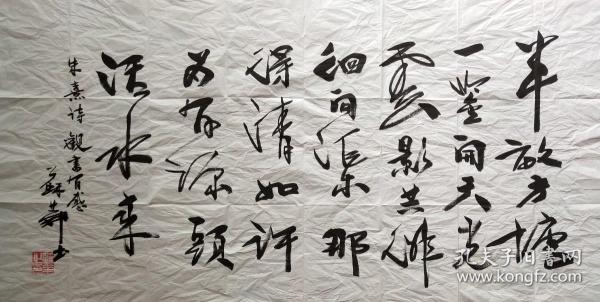 半畝方塘
一鑒開天光
雲影共徘
徊问渠那
得清如許
为有源頭
活水来
朱熹诗觀書有感
蘇
孔夫子旧书网
www.kongfz.com